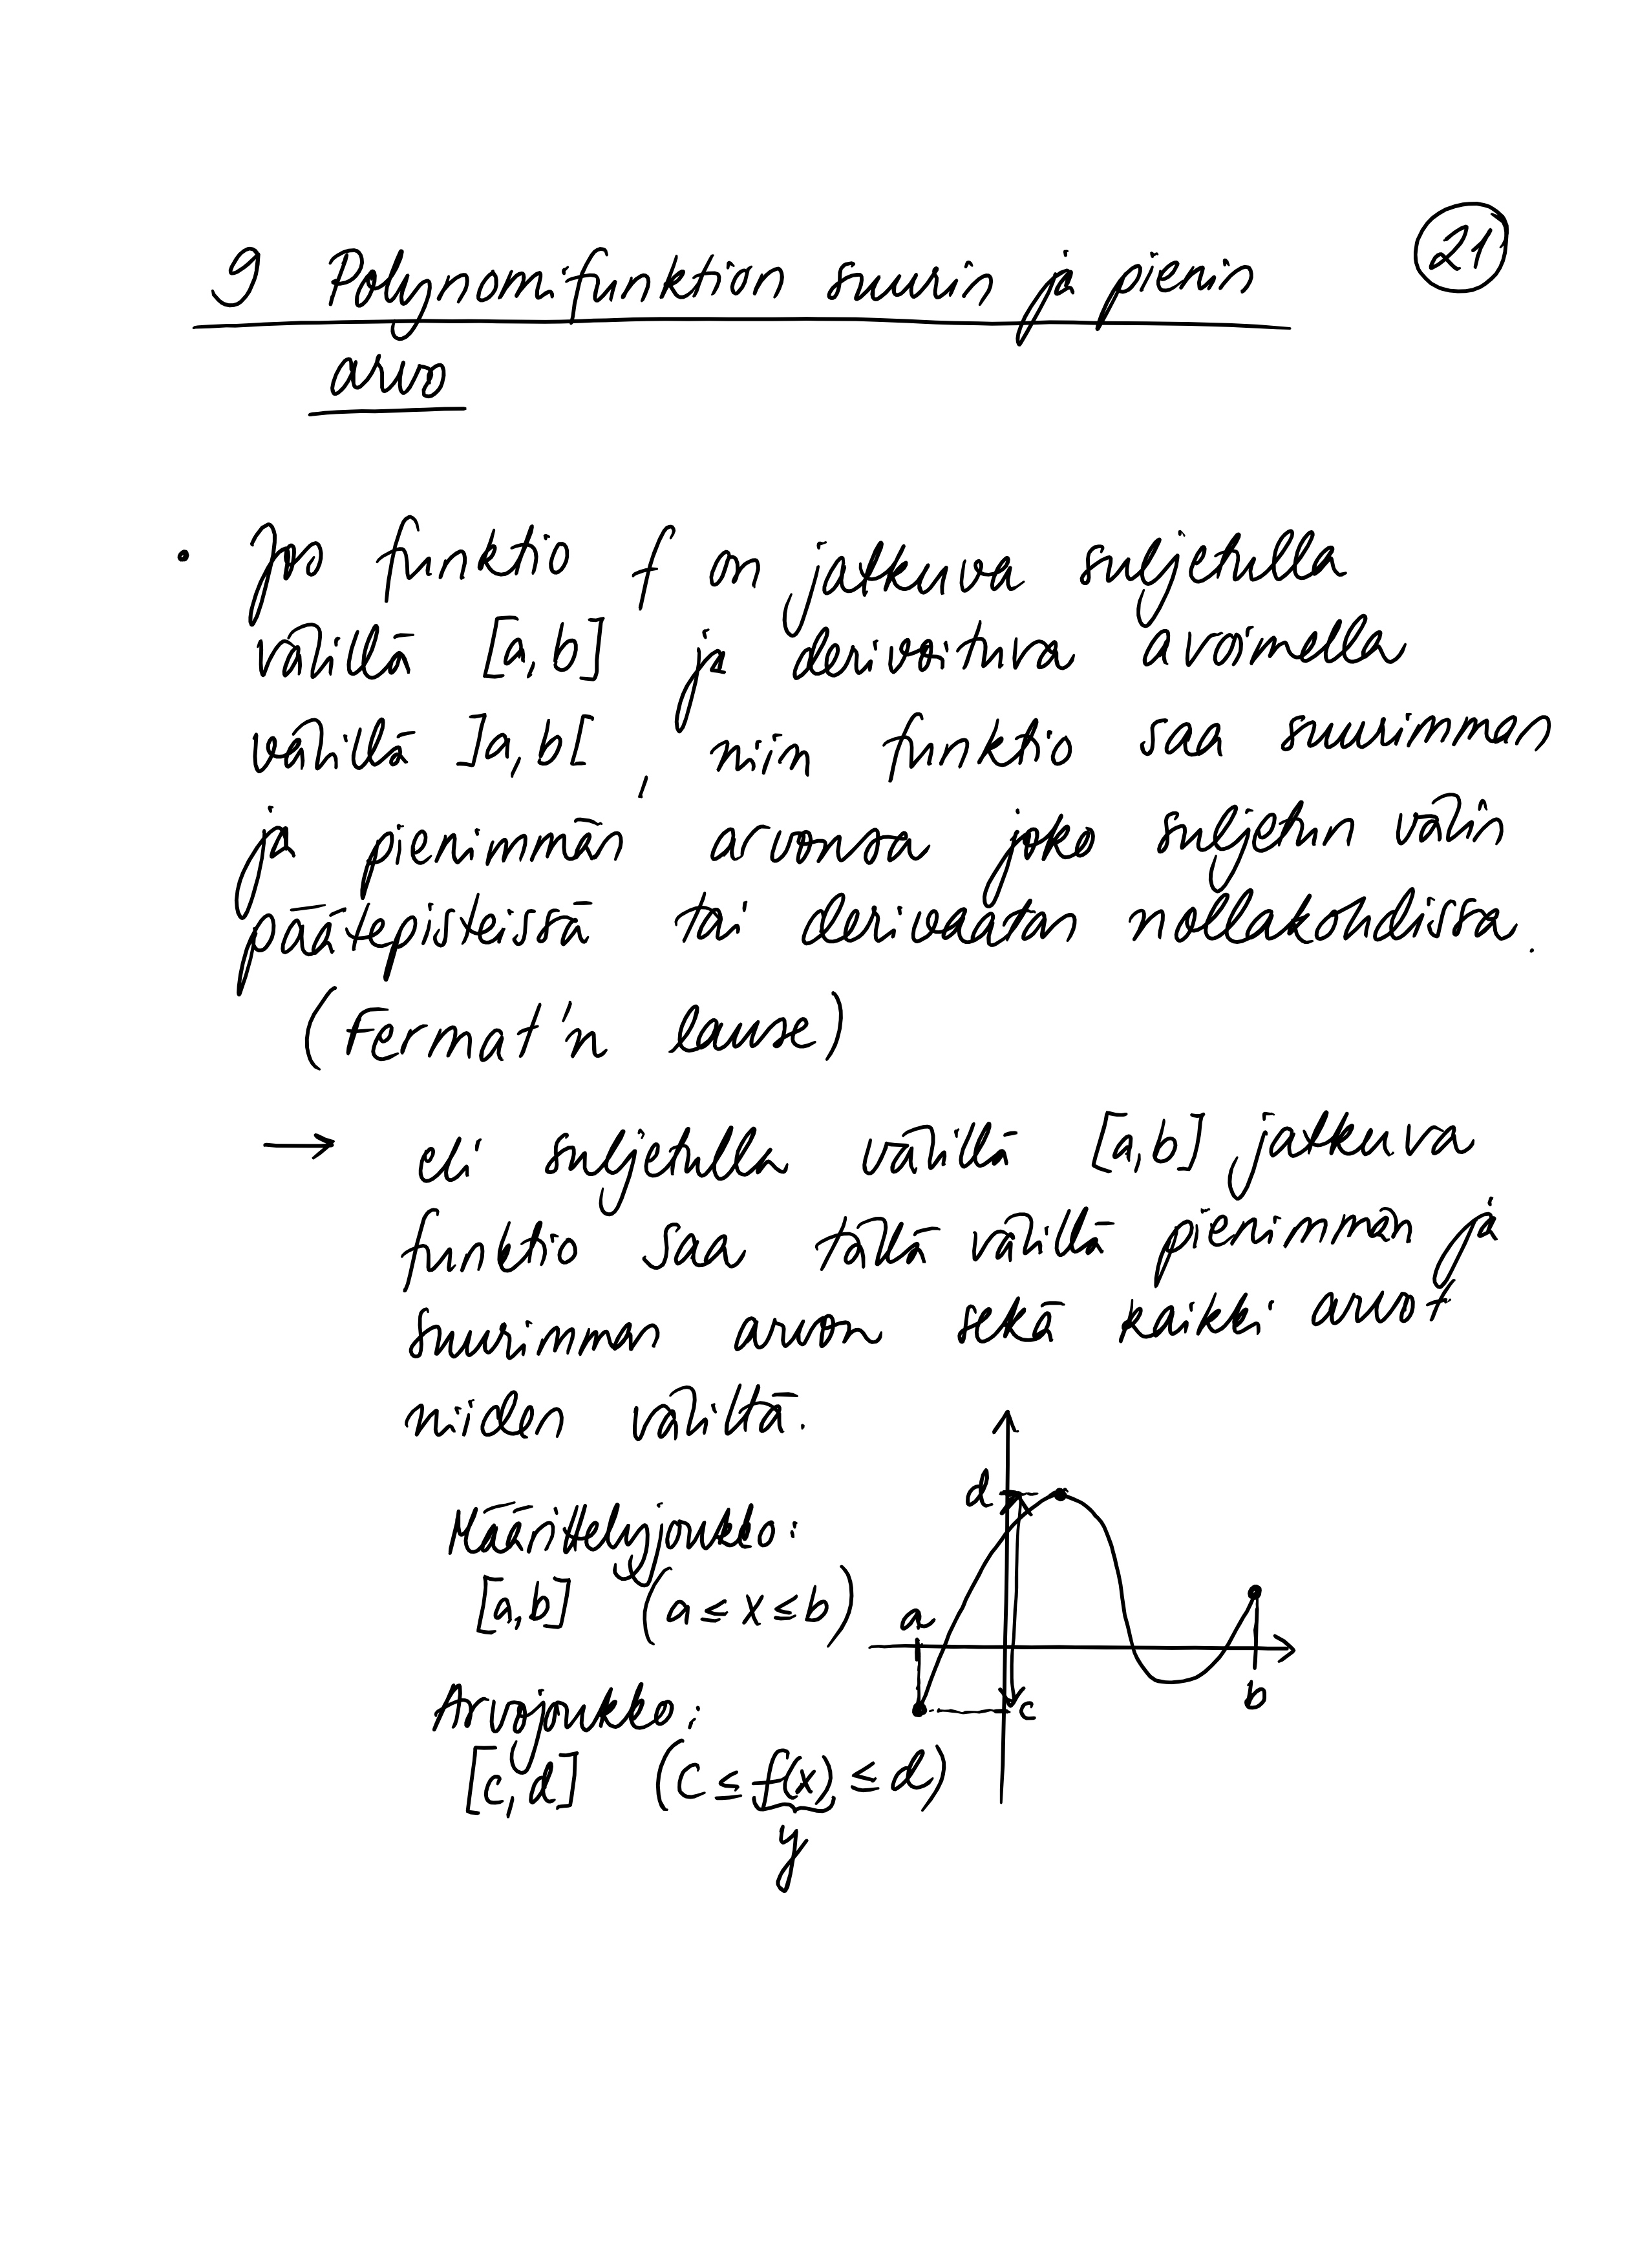 9 Polynomifunktion suurin ja pienin
21
arvo
• Jos funktio f on jatkuva suljetulla
välillä [a,b] ja derivoituva avoimella
välillä ]a,b[, niin funktio saa suurimman
ja pienimmän arvonsa joko suljetun välin
päätepisteissä tai derivaatan nollakohdissa.
(Fermat'n lause)
→ eli suljetulla välillä [a,b] jatkuva
funktio saa tällä välillä pienimmän ja
suurimman arvon sekä kaikki arvot
niiden väliltä.
d
Määrittelyjoukko:
[a,b] (a ≤ x ≤ b)
a
b
c
Arvojoukko:
[c,d] (c ≤ f(x) ≤ d)
y